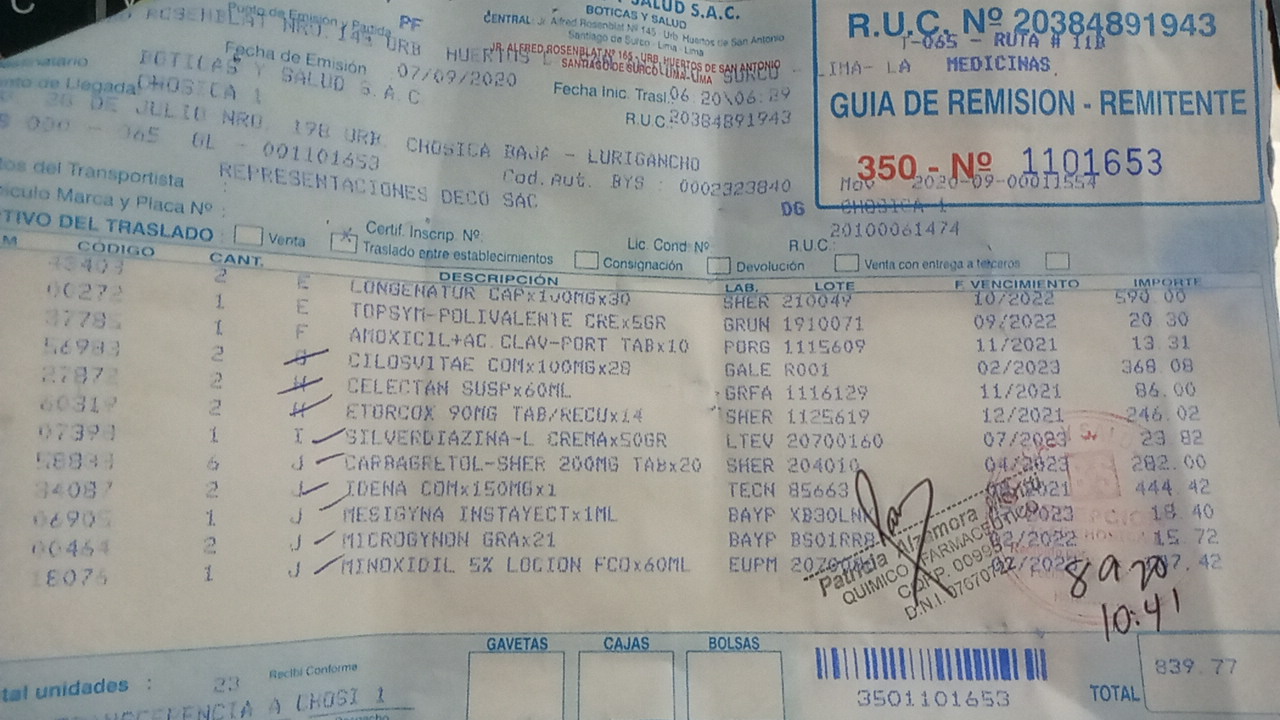 SALUD S.A.C.
BOTICAS Y SALUD
CENTRAL: Jr. Alfred Rosenblat Nº 145 - Urb. Huertos de San Antonio
Santiago de Surco - Lima - Lima
JR. ALFRED ROSENBLAT Nº 165 - URB. HUERTOS DE SAN ANTONIO
SANTIAGO DE SURCO-LIMA-LIMA
R.U.C. Nº 20384891943
T-065 - RUTA # 11B
LIMA- LA MEDICINAS
GUIA DE REMISION - REMITENTE
350 - Nº 1101653
Mov 2020-09-00011554
Punto de Emisión y Partida PF
ROSENBLAT NRO. 143 URB HUERTOS SURCO
Fecha de Emisión 07/09/2020
BOTICAS Y SALUD S.A.C
Fecha Inic. Trasl. 06.20\06:29
R.U.C. 20384891943
nto de Llegada CHOSICA 1
28 DE JULIO NRO. 198 URB. CHOSICA BAJA - LURIGANCHO
000 - 065 GL - 001101653
Cod. Aut. BYS : 0002323840
tos del Transportista REPRESENTACIONES DECO SAC
DG CHOSICA 1
ículo Marca y Placa Nº :
20100061474
Certif. Inscrip. Nº
Lic. Cond. Nº R.U.C.:
TIVO DEL TRASLADO: Venta X Traslado entre establecimientos Consignación Devolución Venta con entrega a terceros
M CÓDIGO CANT. DESCRIPCIÓN LAB. LOTE F. VENCIMIENTO IMPORTE
2 E LONGENATUR CAPx100MGx30 SHER 210049 10/2022 590.00
00272 1 E TOPSYM-POLIVALENTE CREx5GR GRUN 1910071 09/2022 20.30
37785 1 F AMOXICIL+AC.CLAV-PORT TABx10 PORG 1115609 11/2021 13.31
56983 2 CILOSVITAE COMx100MGx28 GALE R001 02/2023 368.08
27872 2 H CELECTAN SUSPx60ML GRFA 1116129 11/2021 86.00
60319 2 H ETORCOX 90MG TAB/RECUx14 SHER 1125619 12/2021 246.02
07398 1 I SILVERDIAZINA-L CREMAx50GR LTEV 20700160 07/2023 23.82
58833 6 J CARBAGRETOL-SHER 200MG TABx20 SHER 204010 04/2023 282.00
34087 2 J IDENA COMx150MGx1 TECN 85663 2021 444.42
06905 1 J MESIGYNA INSTAYECTx1ML BAYP XB30LN 2023 18.40
00464 2 J MICROGYNON GRAx21 BAYP BS01RR8 02/2022 15.72
18076 1 J MINOXIDIL 5% LOCION FCOx60ML EUPM 2070
Patricia Alzamora
QUIMICO FARMACEUTICO
CQFP. 00995
D.N.I. 07670772
8 9 20
10:41
GAVETAS CAJAS BOLSAS
tal unidades : 23 Recibí Conforme
A CHOSI 1
3501101653
TOTAL 839.77